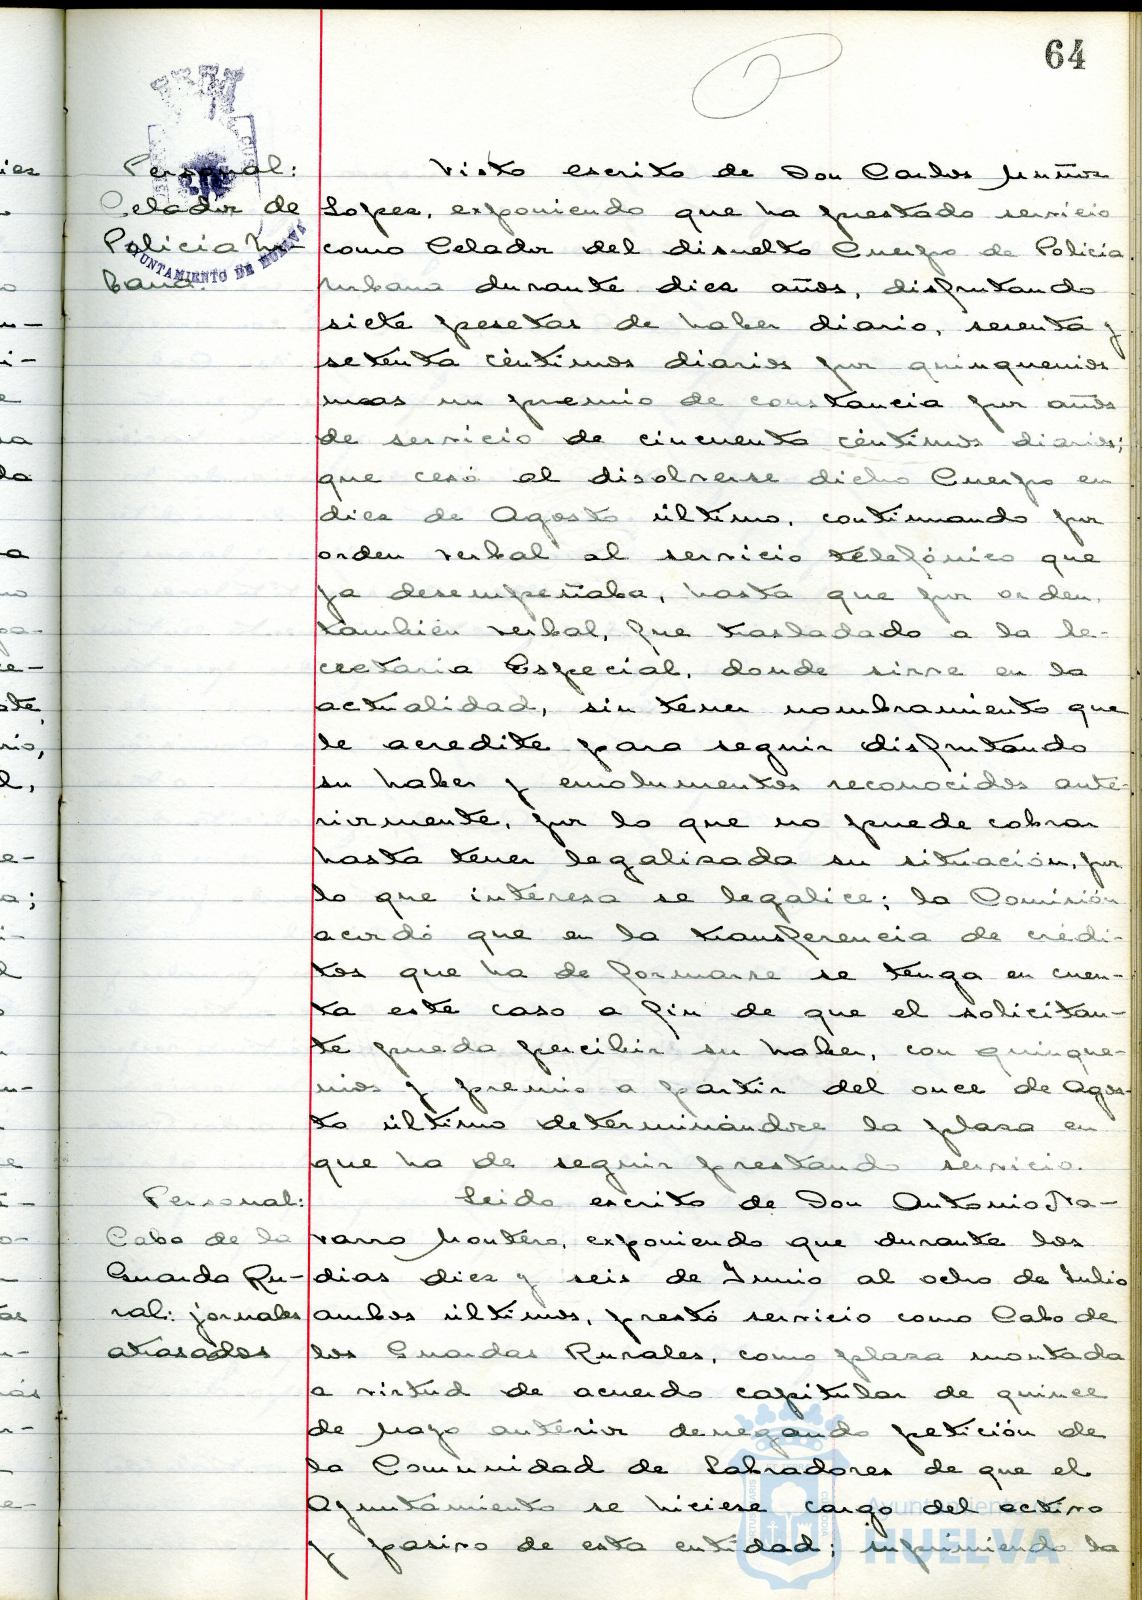 64
Personal:
Celador de
Policia Ur-
bana.
AYUNTAMIENTO DE HUELVA
Visto escrito de Don Carlos Muñoz
Lopez, exponiendo que ha prestado servicio
como Celador del disuelto Cuerpo de Policia
Urbana durante diez años, disfrutando
siete pesetas de haber diario, sesenta y
setenta céntimos diarios por quinquenios
mas un premio de constancia por años
de servicio de cincuenta céntimos diarios;
que cesó al disolverse dicho Cuerpo en
diez de Agosto último, continuando por
orden verbal al servicio telefónico que
ya desempeñaba, hasta que por orden,
también verbal, fue trasladado a la Se-
cretaria Especial, donde sirve en la
actualidad, sin tener nombramiento que
le acredite para seguir disfrutando
su haber y emolumentos reconocidos ante-
riormente, por lo que no puede cobrar
hasta tener legalizada su situación, por
lo que interesa se legalice; la Comisión
acordó que en la transferencia de crédi-
tos que ha de formarse se tenga en cuen-
ta este caso a fin de que el solicitan-
te pueda percibir su haber, con quinque-
nios y premio a partir del once de Agos-
to último determinándose la plaza en
que ha de seguir prestando servicio.
Personal:
Cabo de la
Guarda Ru-
ral: jornales
atrasados
Leido escrito de Don Antonio Na-
varro Montero, exponiendo que durante los
dias diez y seis de Junio al ocho de Julio
ambos últimos, prestó servicio como Cabo de
los Guardas Rurales, como plaza montada
a virtud de acuerdo capitular de quince
de Mayo anterior denegando petición de
la Comunidad de Labradores de que el
Ayuntamiento se hiciese cargo del activo
y pasivo de esta entidad; suprimiendo la
Ayuntamiento
HUELVA